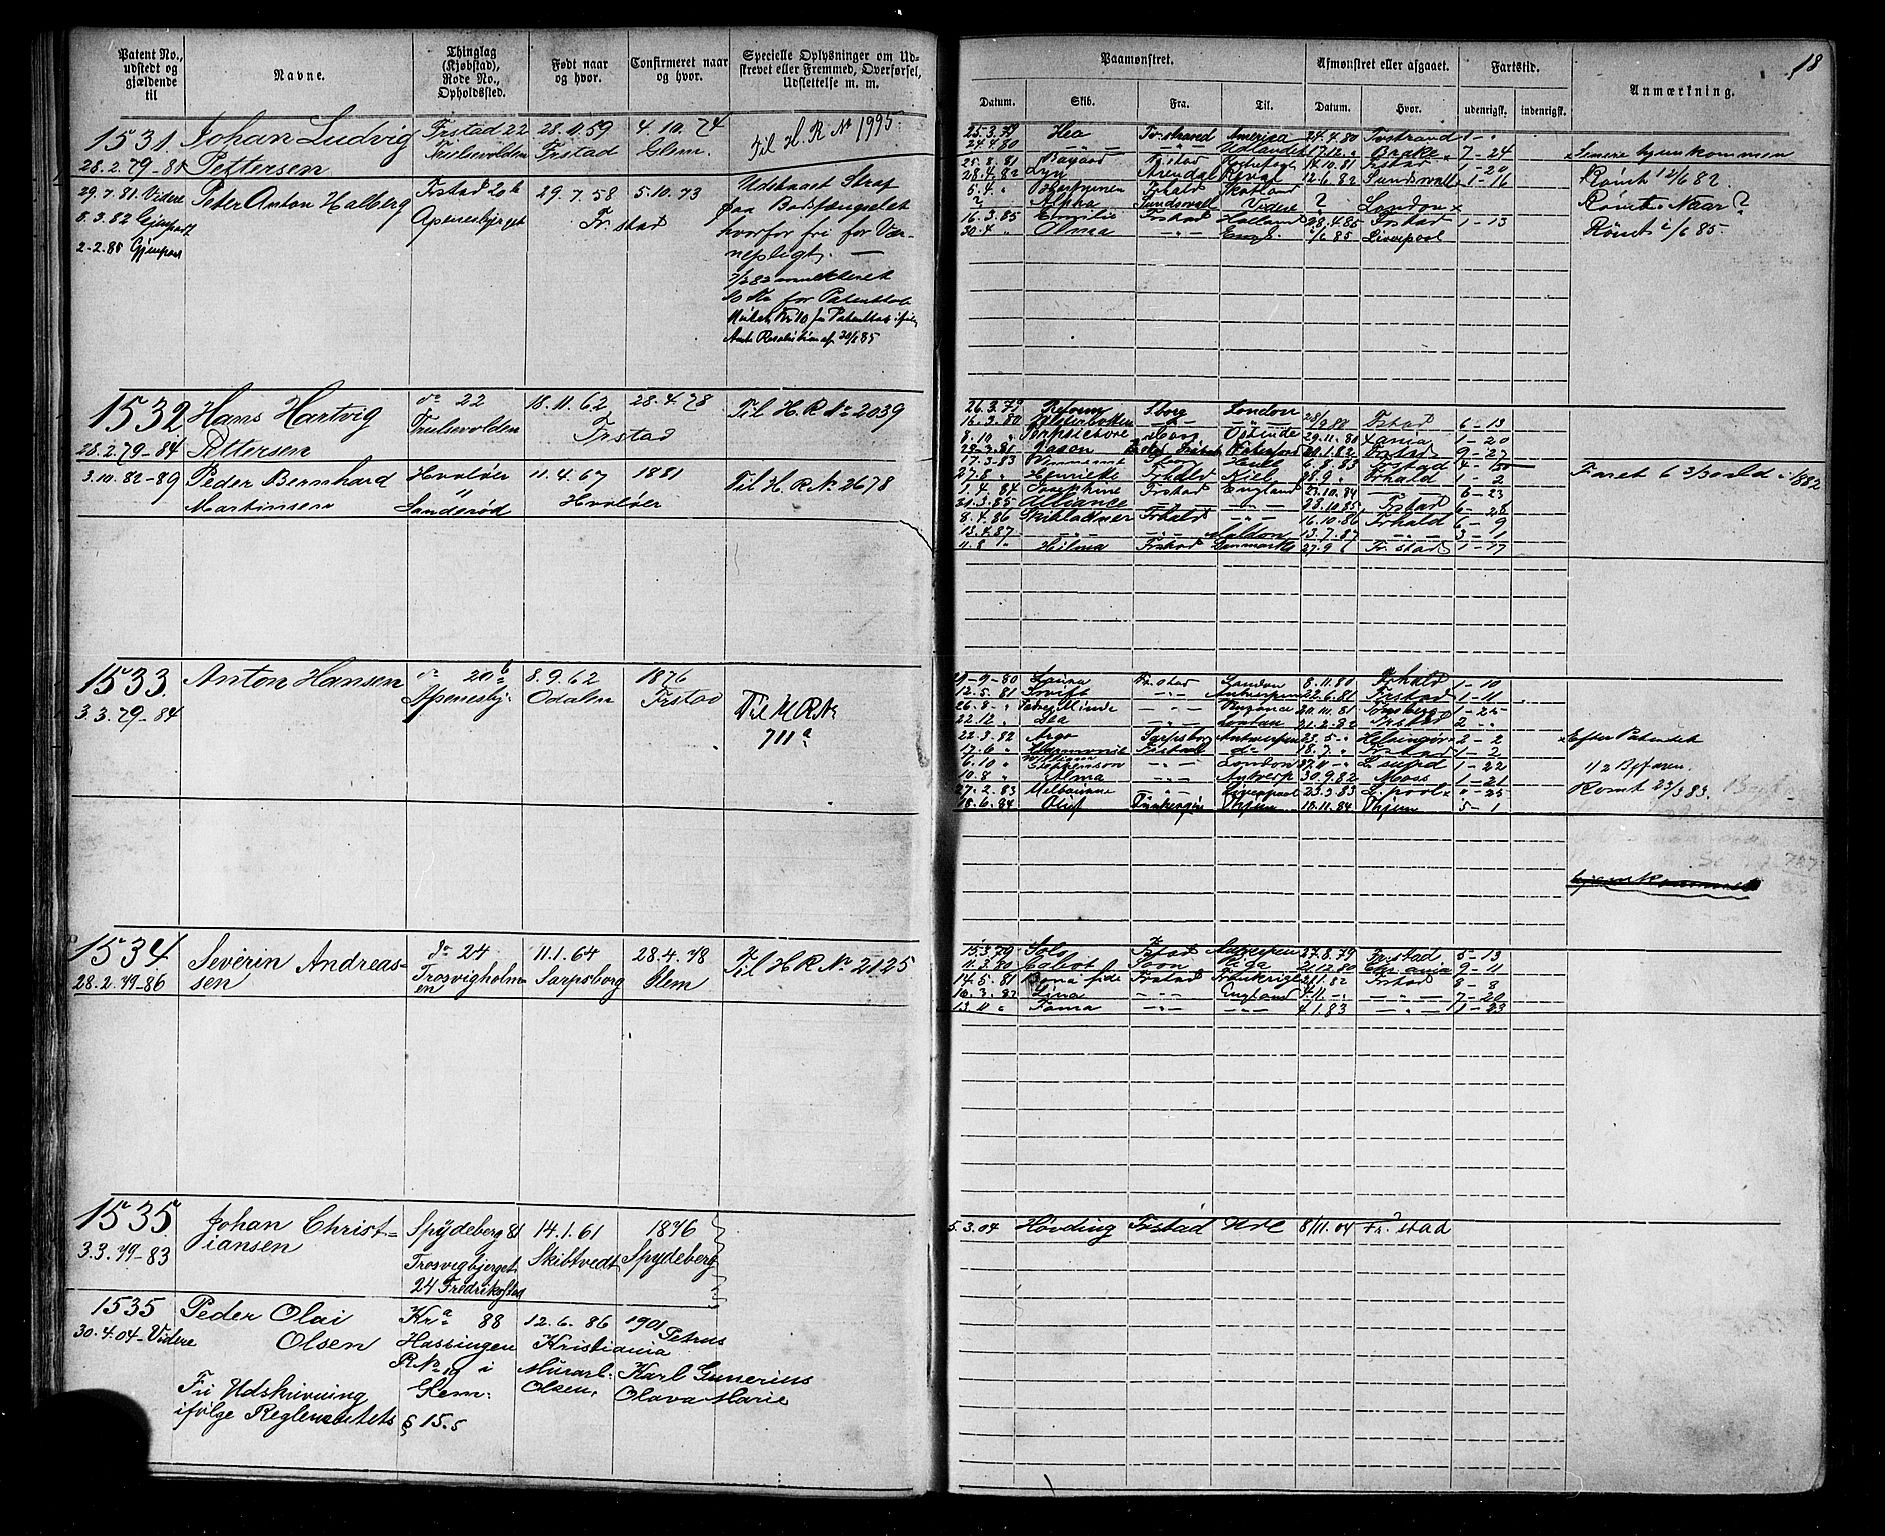 Patent No., udstedt og gjældende til
Navne.
Thinglag (Kjøbstad), Rode No., Opholdssted.
Født naar og hvor.
Confirmeret naar og hvor.
Specielle Oplysninger om Udskrevet eller Fremmed, Overførsel, Udslettelse m. m.
1531 Johan Ludvig Frstad 22 28.11.59 4.10.74 Til H. R. No 1995.
28.2.79-8 Pettersen Truelsvolden Frstad Glem.
29.7.81. Videre Peter Anton Halberg Frstad 20b 29.7.58 5.10.73 Udstaaet Straf
8.3.82 Gjenpart Apenesbjerget Fr.stad paa Bodsfængselet
2-2.85 Gjenpart hvorfor fri for Vær-
nepligt. —
7/2 82 mulkteret
for Patenttab
Mulkt Kr. 10 for Patenttab ifølg
Amts Resolution af 30/1 85
1532 Hans Hartvig do 22 18.11.62 28.4.78 Til H. R. No 2039
28.2.79-84 Pettersen Truelsvolden Frstad
3.10.82-89 Peder Bernhard Hvaløer 11.4.67 1881 Til H. R. No 2678
Martinsen Sanderød Hvaløer
1533 Anton Hansen do 20b 8.9.62 1876 Til H R No
3.3.79-84 Apenesbj. Odalen Frstad 711a
1534 Severin Andreas- do 24 11.1.64 28.4.78 Til H. R. No 2125
28.2.79-86 sen Trosvigholm- Sarpsborg Glem
en
1535 Johan Christ- Spydeberg 81 14.1.61 1876
3.3.79-83 iansen Trosvigbjerget Skibtvedt Spydeberg
24 Fredrikstad
1535 Peder Olai Kra 88 12.6.86 1901 Petrus
30.4.04-Videre Olsen Hassingen Kristiania
R No 19 i Murarb. Karl Gunerius
Fri Udskrivning Glem. Olsen. Olava Marie
ifølge Reglementets § 15.5
18
Paamønstret.
Afmønstret eller afgaaet.
Fartstid.
Anmærkning.
Datum. Skib. Fra. Til. Datum. Hvor. udenrigsk. indenrigsk.
25.3.79 Hea Tv.strand Amerika 24.4.80 Tvstrand 1- "
24.4.80 Udlandet 17.12. " Brake x 7-24 x Senere hjemkommen
25.8.81 Frstad 14.10.81 Frstad 1-20
28.4.82 Lyn Arendal Reval 12.6.82 Sundsvall x 1-16 Rømt 12/6 82.
5.4. " Frhald Skotland
? Alpha Sundsvall Videre ? London x Rømt. Naar?
16.3.85 Emilie Frstad Holland 28.4.85 Frstad 1-13
30.4 " Olma -"- Engl. /6 85 Liverpool Rømt /6 85.
26.3.79 Reform S.borg London
16.3.80 28/9 80 Frstad 6-13
8.10 " Terpsichore Sborg Ostende 29.11.80 Xania 1-20
22.3.81 Frstad 9-27
17.3.83 Sborg 6.8.83 Frstad 4-
27.8. " Henriette Frhald Kiel 28.9. " Frhald 1-2
1.4.84 Josephine Frstad England 23.10.84 -"- 6-23
31.3.85 Alliance -"- -"- 28.10.85 Frstad 6-28
8.4.86 Skibladner Frhald -"- 16.10.86 Frhald 6-9
13.4.87 -"- -"- Maldon 13.7.87 -"- 3-1
11.8 " Hilma Frstad Danmark 27.9 Fr.stad 1-17
-9-80 Laura Fr.stad London 8.11.80 Frhald 1-10
12.5.81 Swift -"- Antwerpen 22.6.81 Frstad 1-11
26.8- " Minde -"- 20.10.81 Tønsberg 1-25
22 12 " Lea -"- London 21.2.82 Frstad 2 "
22.3.82 Argo Sarpsborg Antwerpen 28.5- " Helsingør x 2-2 x Efter Patentet
17.6 " Harmonie Frstad do 18.7 " Frstad 1-2
6.10 " William Stephenson -"- London 27.11- " 1-22 1/2 Byfaren.
10.8 " Alma -"- Antverp 30.9.82 Moss 1-21
27.2.83 Melbourne -"- Liverpool 23.3.83 L.pool x "-25 Rømt 23/3 83.
18.6.84 Oluf 18.11.84 5-1
hjemkommen
15.3.79 Solo Frstad Antwerpen 27.8.79 Fr.stad 5-13
Cabot Soon Riga 21.12.80 9-11
14.5.81 Frstad Frankrig 82 Frstad 8-8
10.3.82 Lina -"- England -"- 7-20
13.11 " Fama -"- -"- 4.1.83 -"- 1-23
5.3.04 Høvding Frstad Udl 8/11.04 Fr.stad